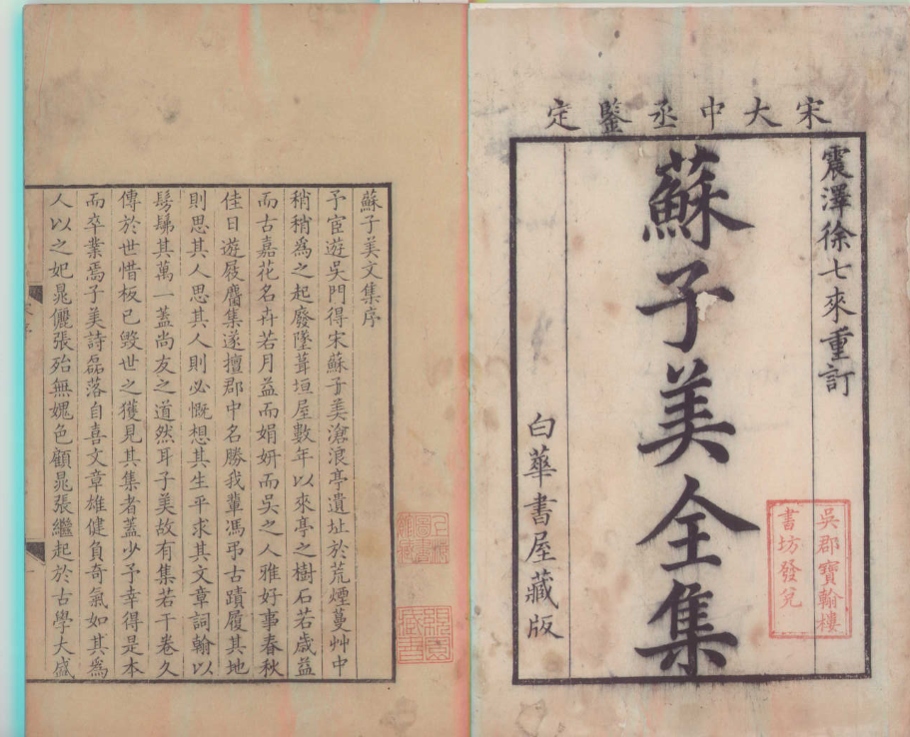 宋大中丞鑒定
震澤徐七來重訂
蘇子美全集
白華書屋藏版
吳郡寶翰樓
書坊發兌
蘇子美文集序
予宦遊吳門得宋蘇子美滄浪亭遺址於荒煙蔓艸中
稍稍為之起廢墜葺垣屋數年以來亭之樹石若歲益
而古嘉花名卉若月益而娟妍而吳之人雅好事春秋
佳日遊屐麕集遂擅郡中名勝我輩馮弔古蹟履其地
則思其人思其人則必慨想其生平求其文章詞翰以
髣髴其萬一蓋尚友之道然耳子美故有集若干卷久
傳於世惜板已毀世之獲見其集者蓋少予幸得是本
而卒業焉子美詩磊落自喜文章雄健負奇氣如其為
人以之妃晁儷張殆無媿色顧晁張繼起於古學大盛